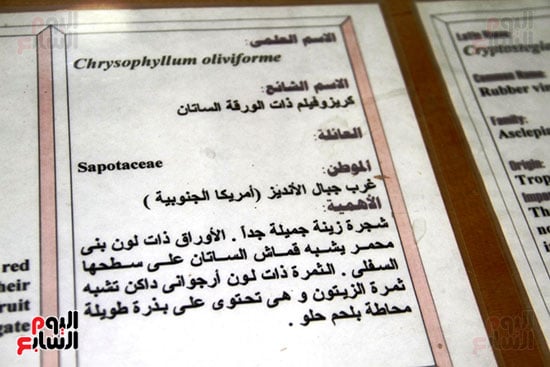 الاسم العلمى:
Chrysophyllum oliviforme
الاسم الشائع:
كريزوفيلم ذات الورقة الساتان
العائلة:
Sapotaceae
الموطن:
غرب جبال الأنديز (أمريكا الجنوبية )
الأهمية:
شجرة زينة جميلة جداً . الأوراق ذات لون بنى
محمر يشبه قماش الساتان على سطحها
السفلى . الثمرة ذات لون أرجوانى داكن تشبه
ثمرة الزيتون و هى تحتوى على بذرة طويلة
محاطة بلحم حلو .
Latin Name:
Cryptosteg
Common Name:
Rubber vin
Family:
Asclepin
Origin:
Trop
The
no
is
red
heir
ruit
gate
اليوم السابع
اليوم السابع